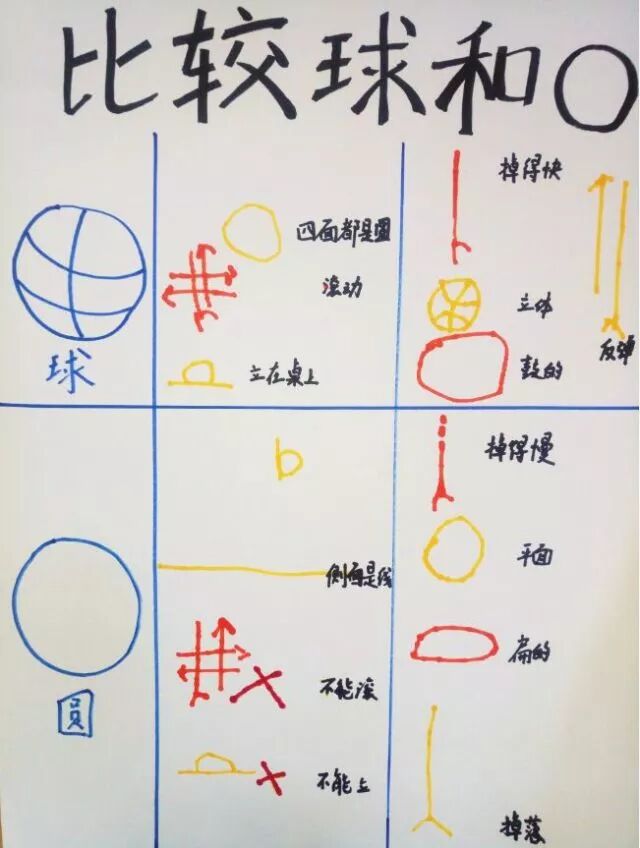 比较球和○
掉得快
四面都是圆
滚动
立体
反弹
球
立在桌上
鼓的
掉得慢
b
平面
侧面是线
扁的
不能滚
圆
不能立
掉落